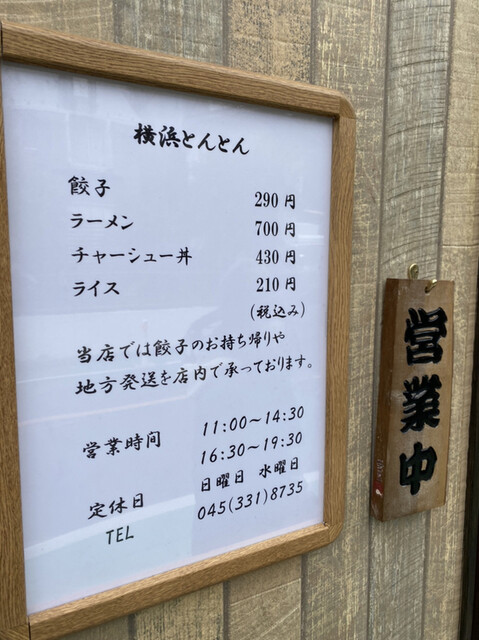 横浜とんとん
餃子 290円
ラーメン 700円
チャーシュー丼 430円
ライス 210円
(税込み)
当店では餃子のお持ち帰りや
地方発送を店内で承っております。
営業時間 11:00～14:30
16:30～19:30
定休日 日曜日 水曜日
TEL 045(331)8735
営業中